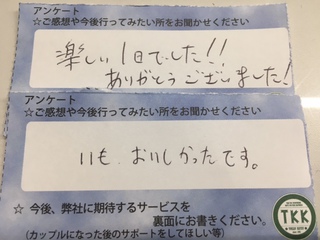 アンケート
☆ご感想や今後行ってみたい所をお聞かせください
楽しい1日でした!!
ありがとうございました!
アンケート
☆ご感想や今後行ってみたい所をお聞かせください
いも、おいしかったです。
☆ 今後、弊社に期待するサービスを
裏面にお書きください。
(カップルになった後のサポートをしてほしい等)
TKK